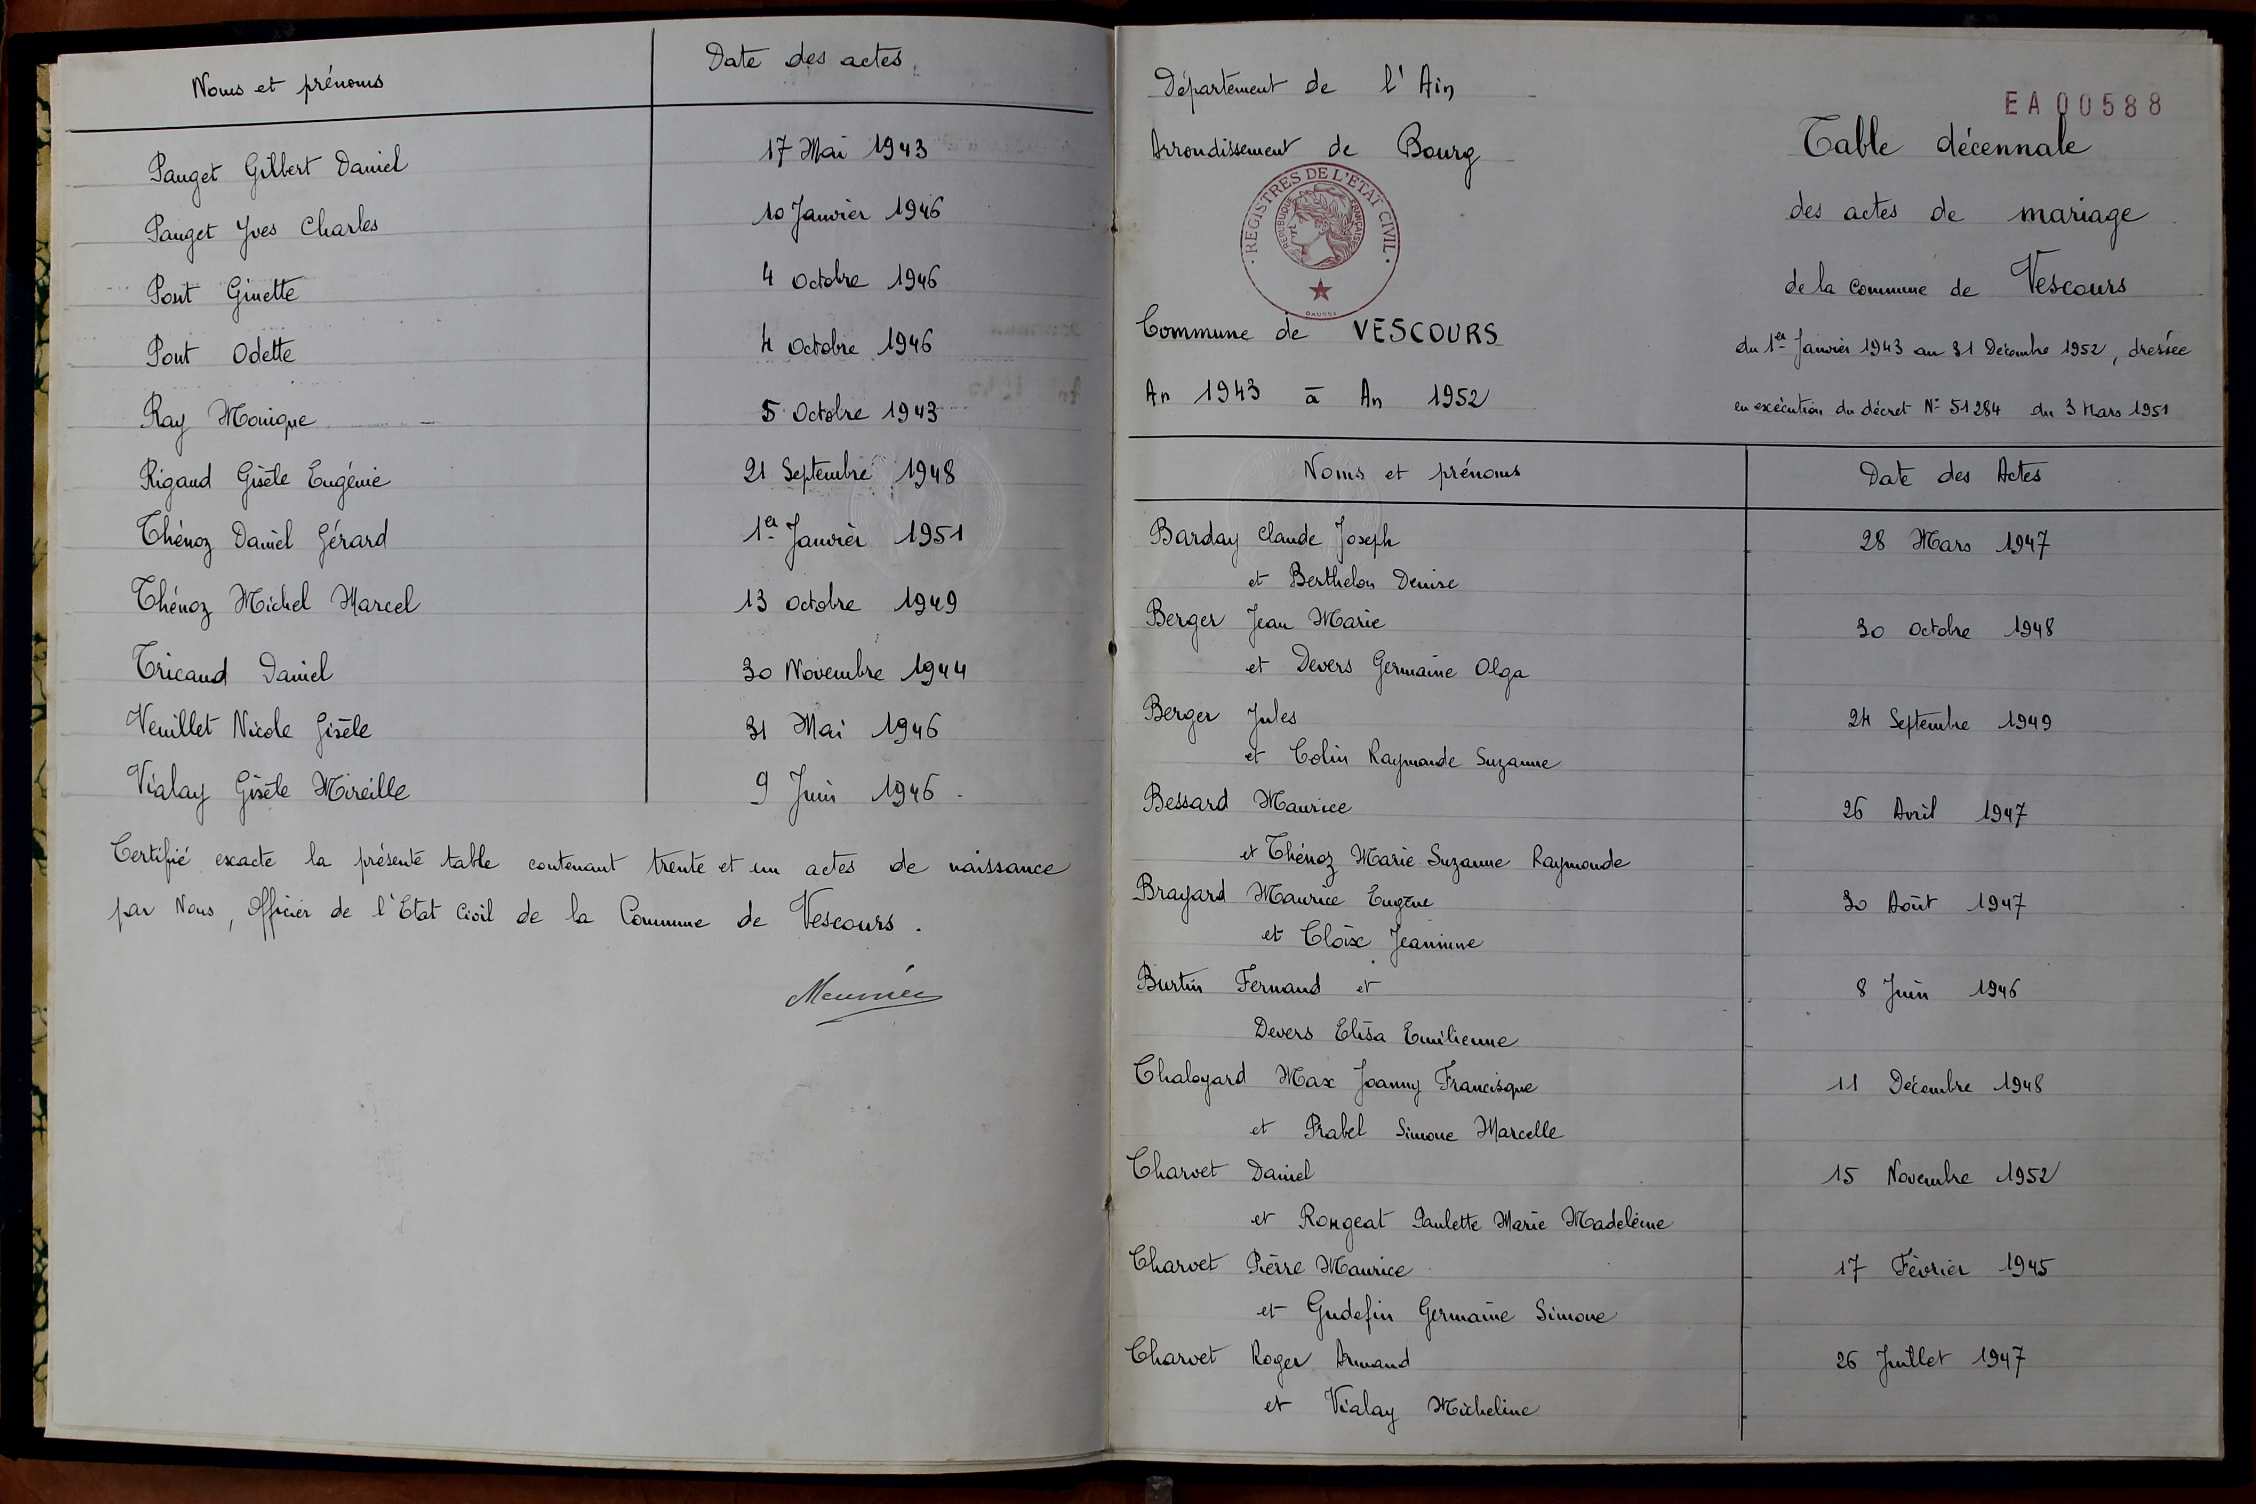 Noms et prénoms
Date des actes
Pauget Gilbert Daniel
17 Mai 1943
Pauget Yves Charles
10 Janvier 1946
Pont Ginette
4 Octobre 1946
Pont Odette
4 Octobre 1946
Ray Monique
5 Octobre 1943
Rigaud Gisèle Eugénie
21 Septembre 1948
Thénoz Daniel Gérard
1er Janvier 1951
Thénoz Michel Marcel
13 Octobre 1949
Tricaud Daniel
30 Novembre 1944
Veuillet Nicole Gisèle
31 Mai 1946
Vialay Gisèle Mireille
9 Juin 1946.
Certifié exacte la présente table contenant trente et un actes de naissance
par Nous, Officier de l'Etat Civil de la Commune de Vescours.
Meunier
Département de l'Ain
EA 00588
Arrondissement de Bourg
Table décennale
REGISTRES DE L'ETAT CIVIL
REPUBLIQUE FRANÇAISE
des actes de mariage
de la Commune de Vescours
Commune de VESCOURS
du 1er Janvier 1943 au 31 Décembre 1952, dressée
An 1943 à An 1952
en exécution du décret N° 51284 du 3 Mars 1951
Noms et prénoms
Date des Actes
Barday Claude Joseph
28 Mars 1947
et Berthelon Denise
Berger Jean Marie
30 Octobre 1948
et Devers Germaine Olga
Berger Jules
24 Septembre 1949
et Colin Raymonde Suzanne
Bessard Maurice
26 Avril 1947
et Thénoz Marie Suzanne Raymonde
Brayard Maurice Eugène
30 Août 1947
et Cloix Jeannine
Burtin Fernand et
8 Juin 1946
Devers Elisa Emilienne
Chaloyard Max Joanny Francisque
11 Décembre 1948
et Prabel Simone Marcelle
Charvet Daniel
15 Novembre 1952
et Rongeat Paulette Marie Madeleine
Charvet Pierre Maurice
17 Février 1945
et Gudefin Germaine Simone
Charvet Roger Armand
26 Juillet 1947
et Vialay Micheline